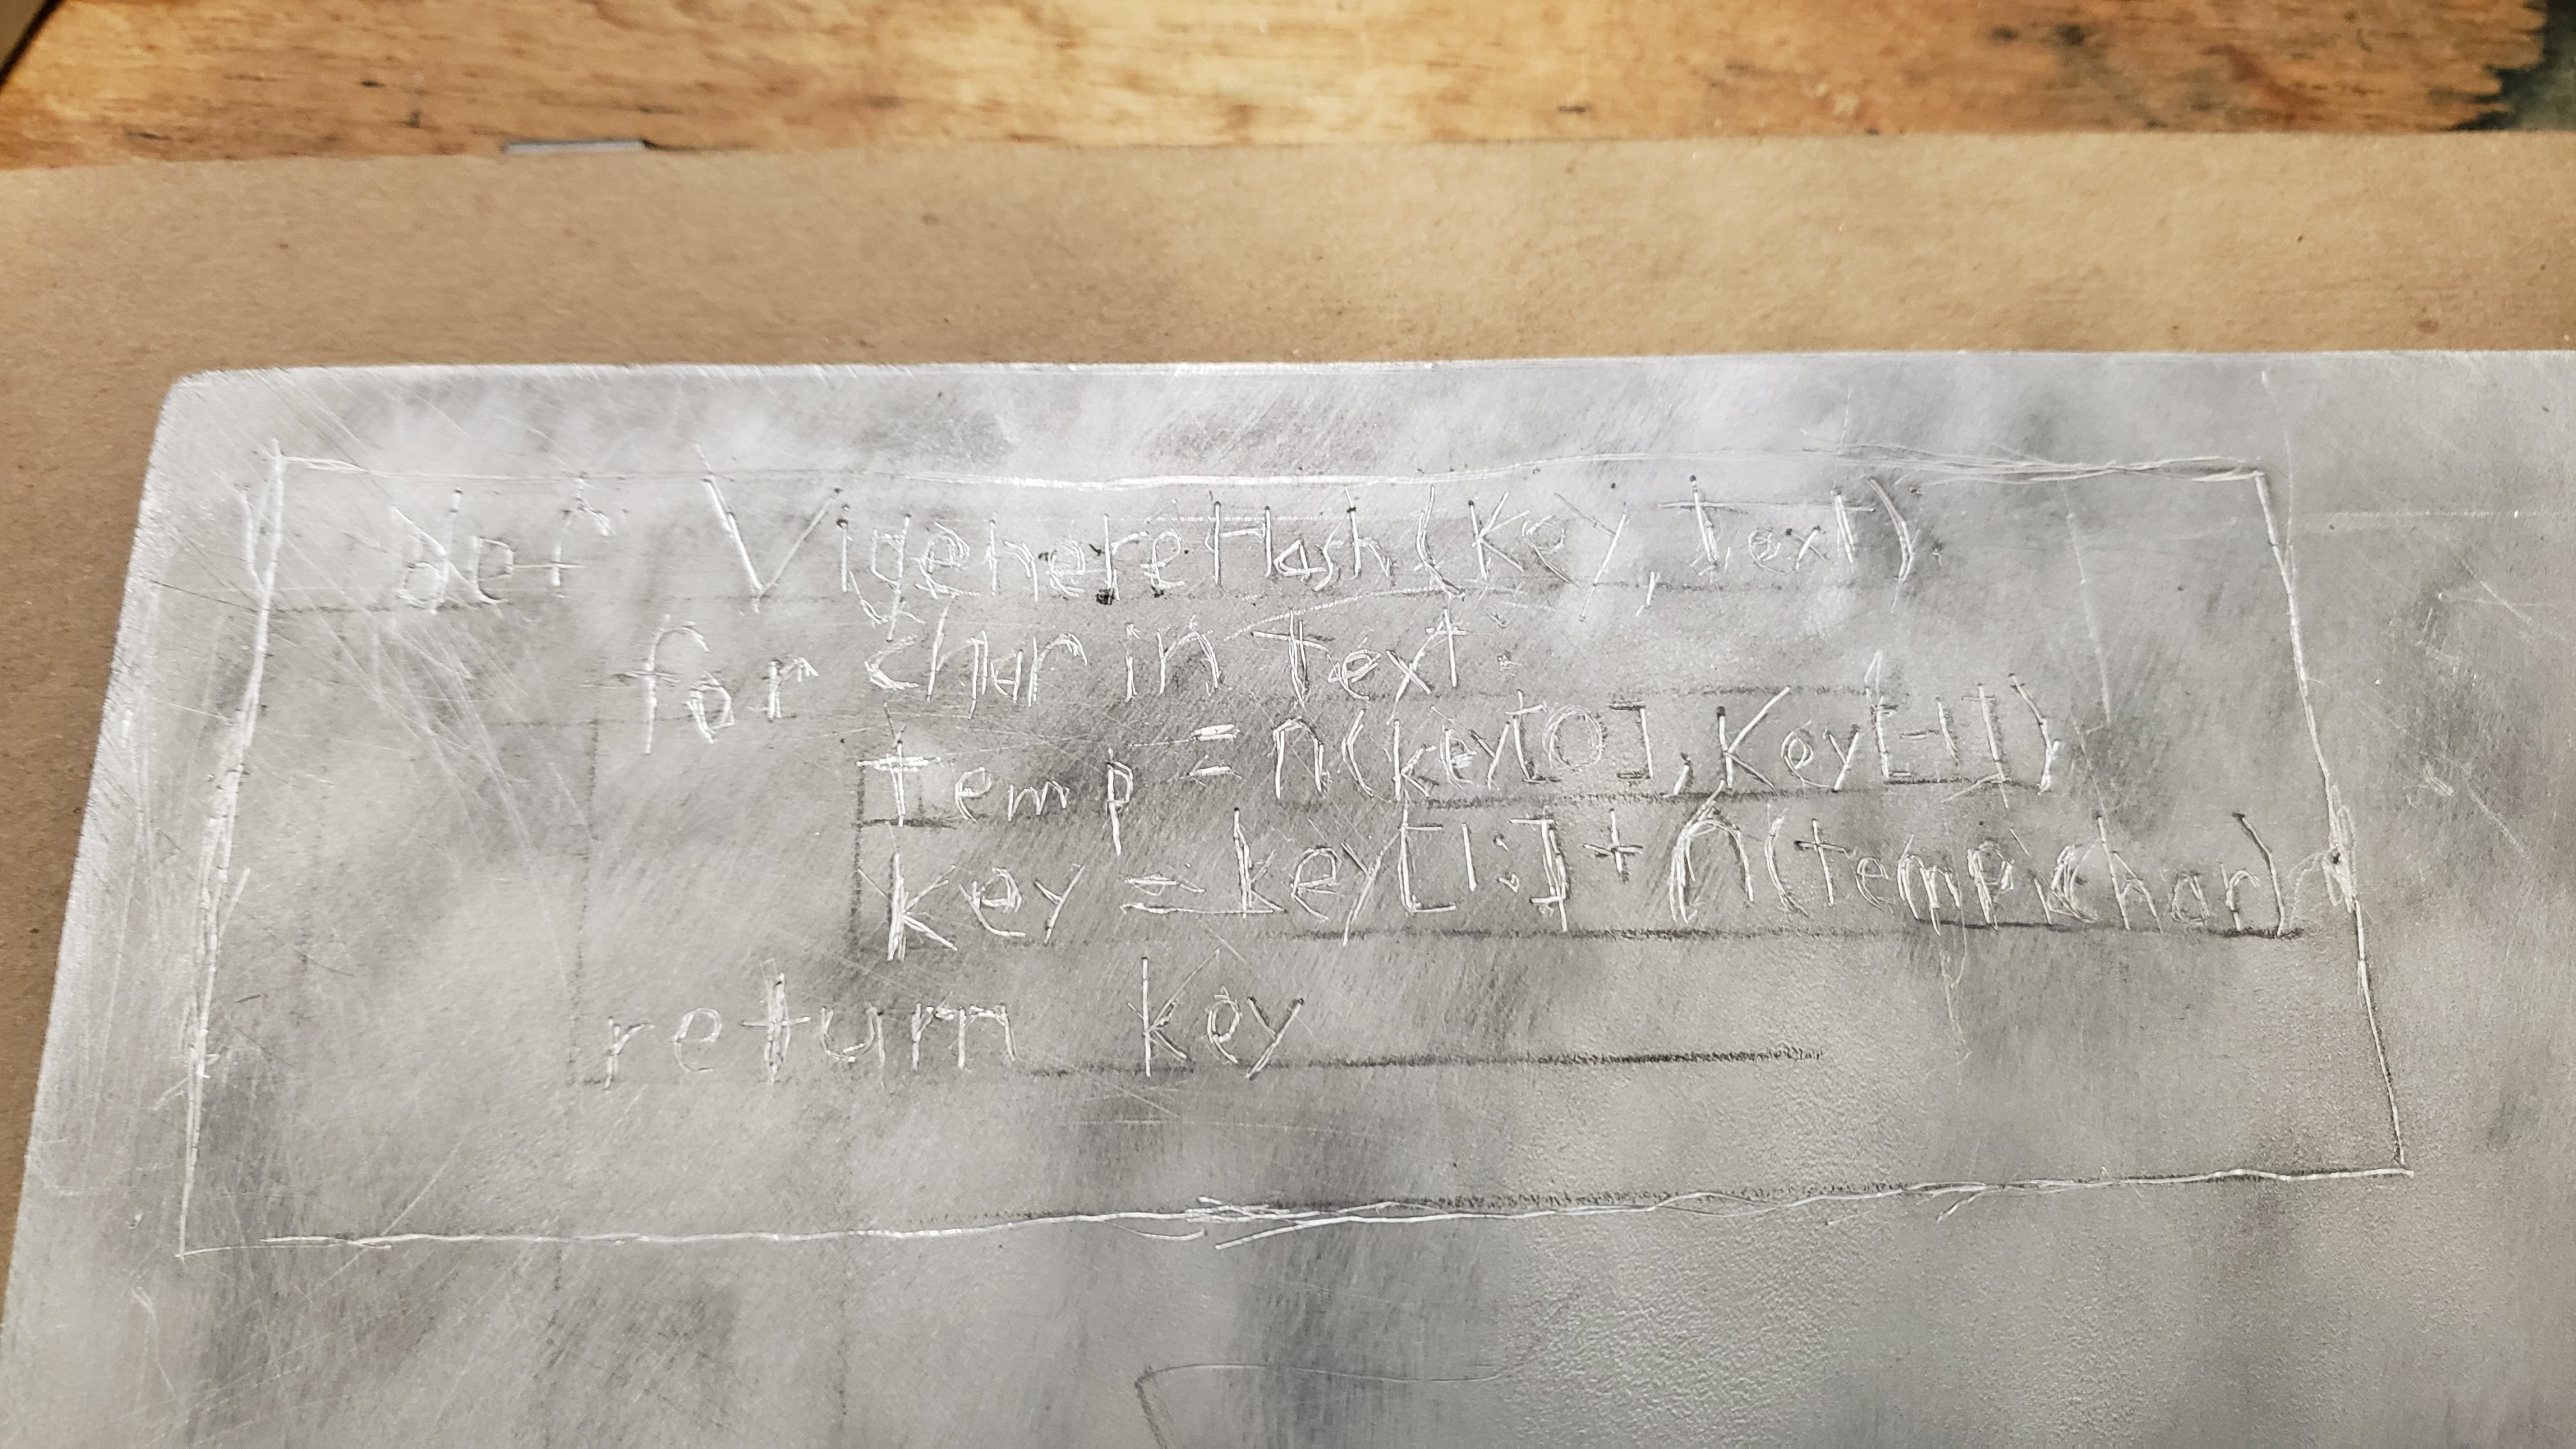 def VigenereHash(key, text):
for char in text:
temp = n(key[0], key[-1])
key = key[1:] + n(temp, char)
return key